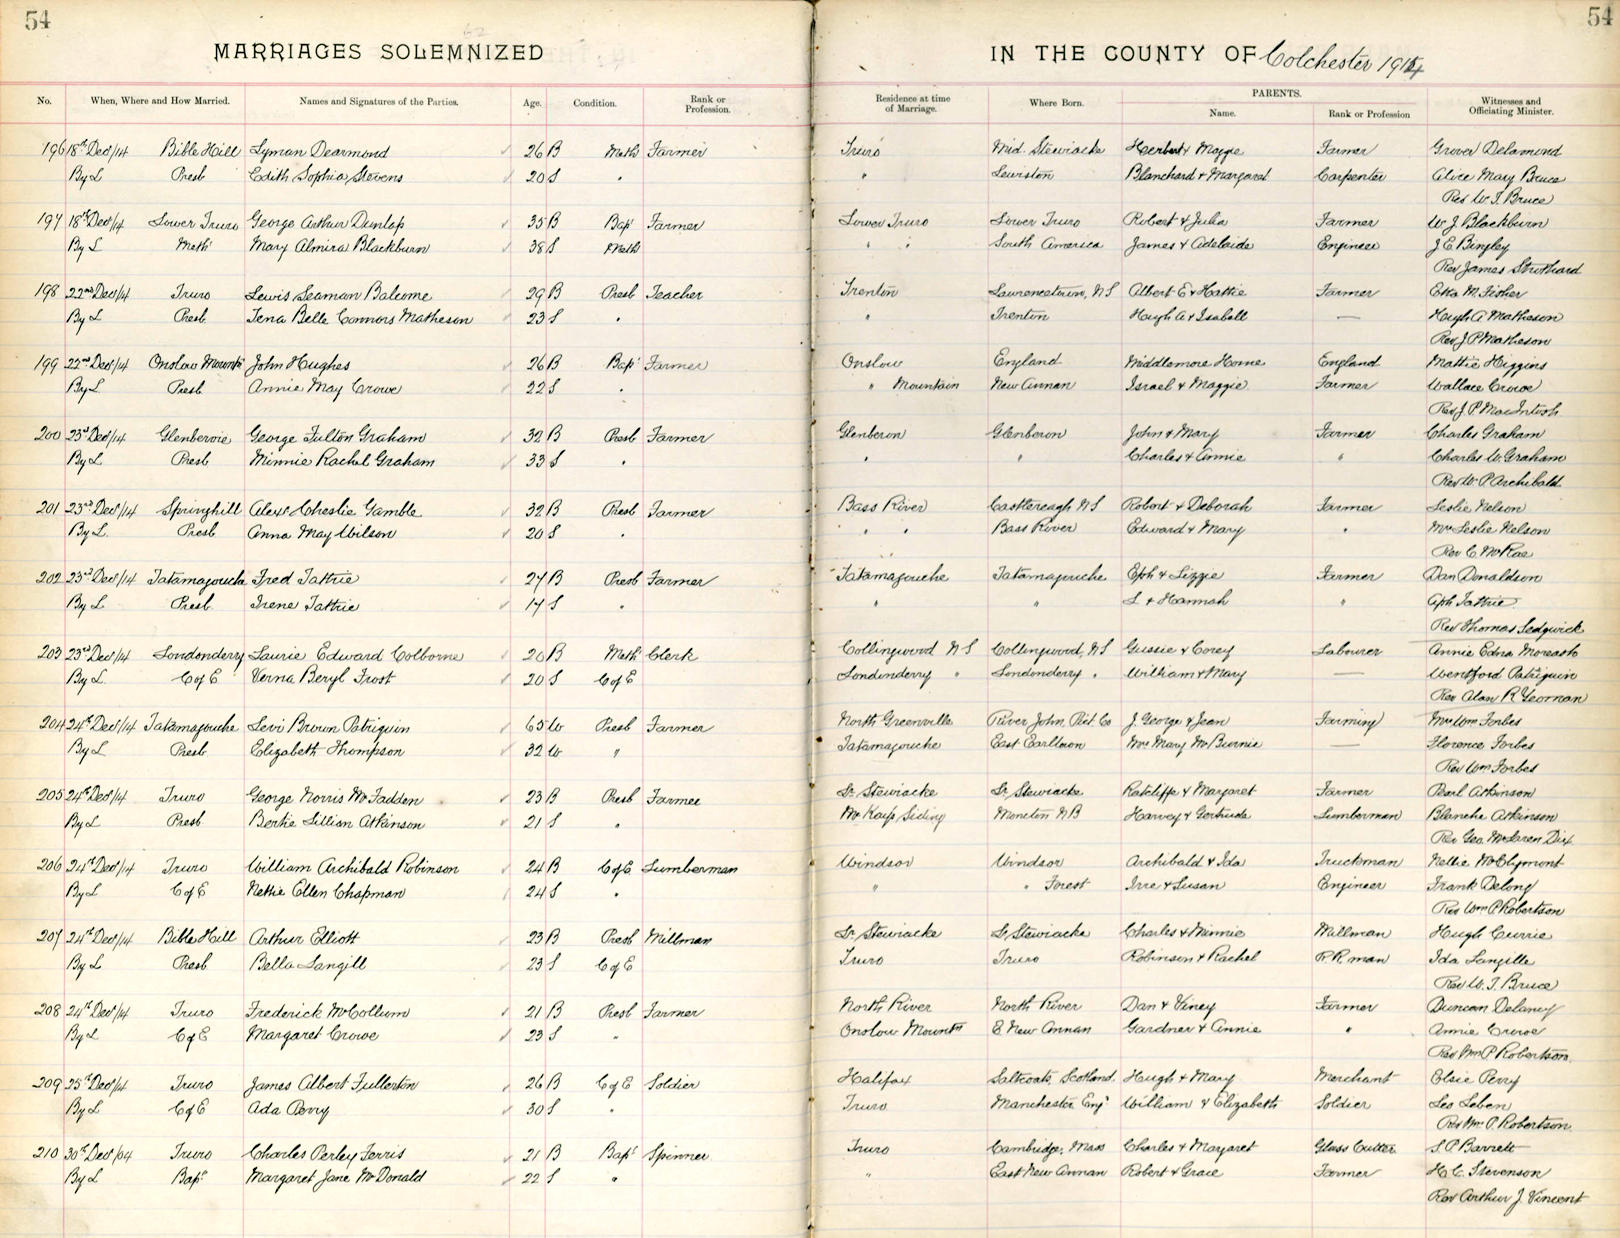 54
54
MARRIAGES SOLEMNIZED
IN THE COUNTY OF Colchester 1914
No. When, Where and How Married. Names and Signatures of the Parties. Age. Condition. Rank or Profession. Residence at time of Marriage. Where Born. PARENTS. Name. Rank or Profession Witnesses and Officiating Minister.
196 18th Dec/14 Bible Hill Lyman Dearmond 26 B Meth Farmer Truro Mid. Stewiacke Herbert & Maggie Farmer Grover Delamond
By L Presb Edith Sophia Stevens 20 S " " Lewiston Blanchard & Margaret Carpenter Alice Mary Bruce
Rev W. T. Bruce
197 18th Dec/14 Lower Truro George Arthur Dunlap 35 B Bapt Farmer Lower Truro Lower Truro Robert & Julia Farmer W J Blackburn
By L Meth Mary Almira Blackburn 38 S Meth " " South America James & Adelaide Engineer J E Bingley
Rev James Strothard
198 22nd Dec/14 Truro Lewis Seaman Balcome 29 B Presb Teacher Trenton Lawrencetown, NS Albert E & Hattie Farmer Etta M. Fisher
By L Presb Tena Belle Connors Matheson 23 S " " Trenton Hugh A & Isabell — Hugh A Matheson
Rev J P Matheson
199 22nd Dec/14 Onslow Mountn John Hughes 26 B Bapt Farmer Onslow England Middlemore Home England Mattie Higgins
By L Presb Annie May Crowe 22 S " " Mountain New Annan Israel & Maggie Farmer Wallace Crowe
Rev J P MacIntosh
200 23rd Dec/14 Glenbervie George Fulton Graham 32 B Presb Farmer Glenberon Glenberon John & Mary Farmer Charles Graham
By L Presb Minnie Rachel Graham 33 S " " " Charles & Annie " Charles W. Graham
Rev W. P Archibald
201 23rd Dec/14 Springhill Alexr Cheslie Gamble 32 B Presb Farmer Bass River Castlereagh NS Robert & Deborah Farmer Leslie Nelson
By L. Presb Anna May Wilson 20 S " " " Bass River Edward & Mary " Mrs Leslie Nelson
Rev C McRae
202 23rd Dec/14 Tatamagouche Fred Tattrie 27 B Presb Farmer Tatamagouche Tatamagouche Eph & Lizzie Farmer Dan Donaldson
By L Presb Irene Tattrie 17 S " " " L & Hannah " Eph Tattrie
Rev Thomas Sedgwick
203 23rd Dec/14 Londonderry Laurie Edward Colborne 20 B Meth Clerk Collingwood NS Collingwood, NS Gussie & Corey Labourer Annie Edna Moreash
By L. C of E Verna Beryl Frost 20 S C of E Londonderry " Londonderry " William & Mary — Wentford Patriquin
Rev Alan R Yeoman
204 24th Dec/14 Tatamagouche Levi Brown Patriquin 65 W Presb Farmer North Greenville River John, Pict Co J. George & Jean Farming Mrs Wm Forbes
By L Presb Elizabeth Thompson 32 W " Tatamagouche East Earltown Mrs Mary McBurnie — Florence Forbes
Rev Wm Forbes
205 24th Dec/14 Truro George Norris McFadden 23 B Presb Farmer Lr. Stewiacke Lr. Stewiacke Ratcliffe & Margaret Farmer Pearl Atkinson
By L Presb Bertie Lillian Atkinson 21 S " McKays Siding Moncton NB Harvey & Gertrude Lumberman Blanche Atkinson
Rev Geo. McLaren Dix
206 24th Dec/14 Truro William Archibald Robinson 24 B C of E Lumberman Windsor Windsor Archibald & Ida Truckman Nellie McClymont
By L C of E Nettie Ellen Chapman 24 S " " " Forest Irre & Susan Engineer Frank Delong
Rev Wm P Robertson
207 24th Dec/14 Bible Hill Arthur Elliott 23 B Presb Millman Lr. Stewiacke Lr. Stewiacke Charles & Minnie Millman Hugh Currie
By L Presb Bella Langill 23 S C of E Truro Truro Robinson & Rachel R.R. man Ida Langille
Rev W. T. Bruce
208 24th Dec/14 Truro Frederick McCollum 21 B Presb Farmer North River North River Dan & Viney Farmer Duncan Delaney
By L C of E Margaret Crowe 23 S " Onslow Mountn E New Annan Gardner & Annie " Annie Crowe
Rev Wm P Robertson.
209 25th Dec/14 Truro James Albert Fullerton 26 B C of E Soldier Halifax Saltcoats, Scotland. Hugh & Mary Merchant Elsie Perry
By L C of E Ada Perry 30 S " Truro Manchester Engd William & Elizabeth Soldier Leo Leben
Rev Wm. P. Robertson.
210 30th Dec/04 Truro Charles Perley Ferris 21 B Bapt Spinner Truro Cambridge, Mass Charles & Margaret Glass Cutter S. P Barrett
By L Bapt Margaret Jane McDonald 22 S " " East New Annan Robert & Grace Farmer H. C. Stevenson
Rev Arthur J. Vincent